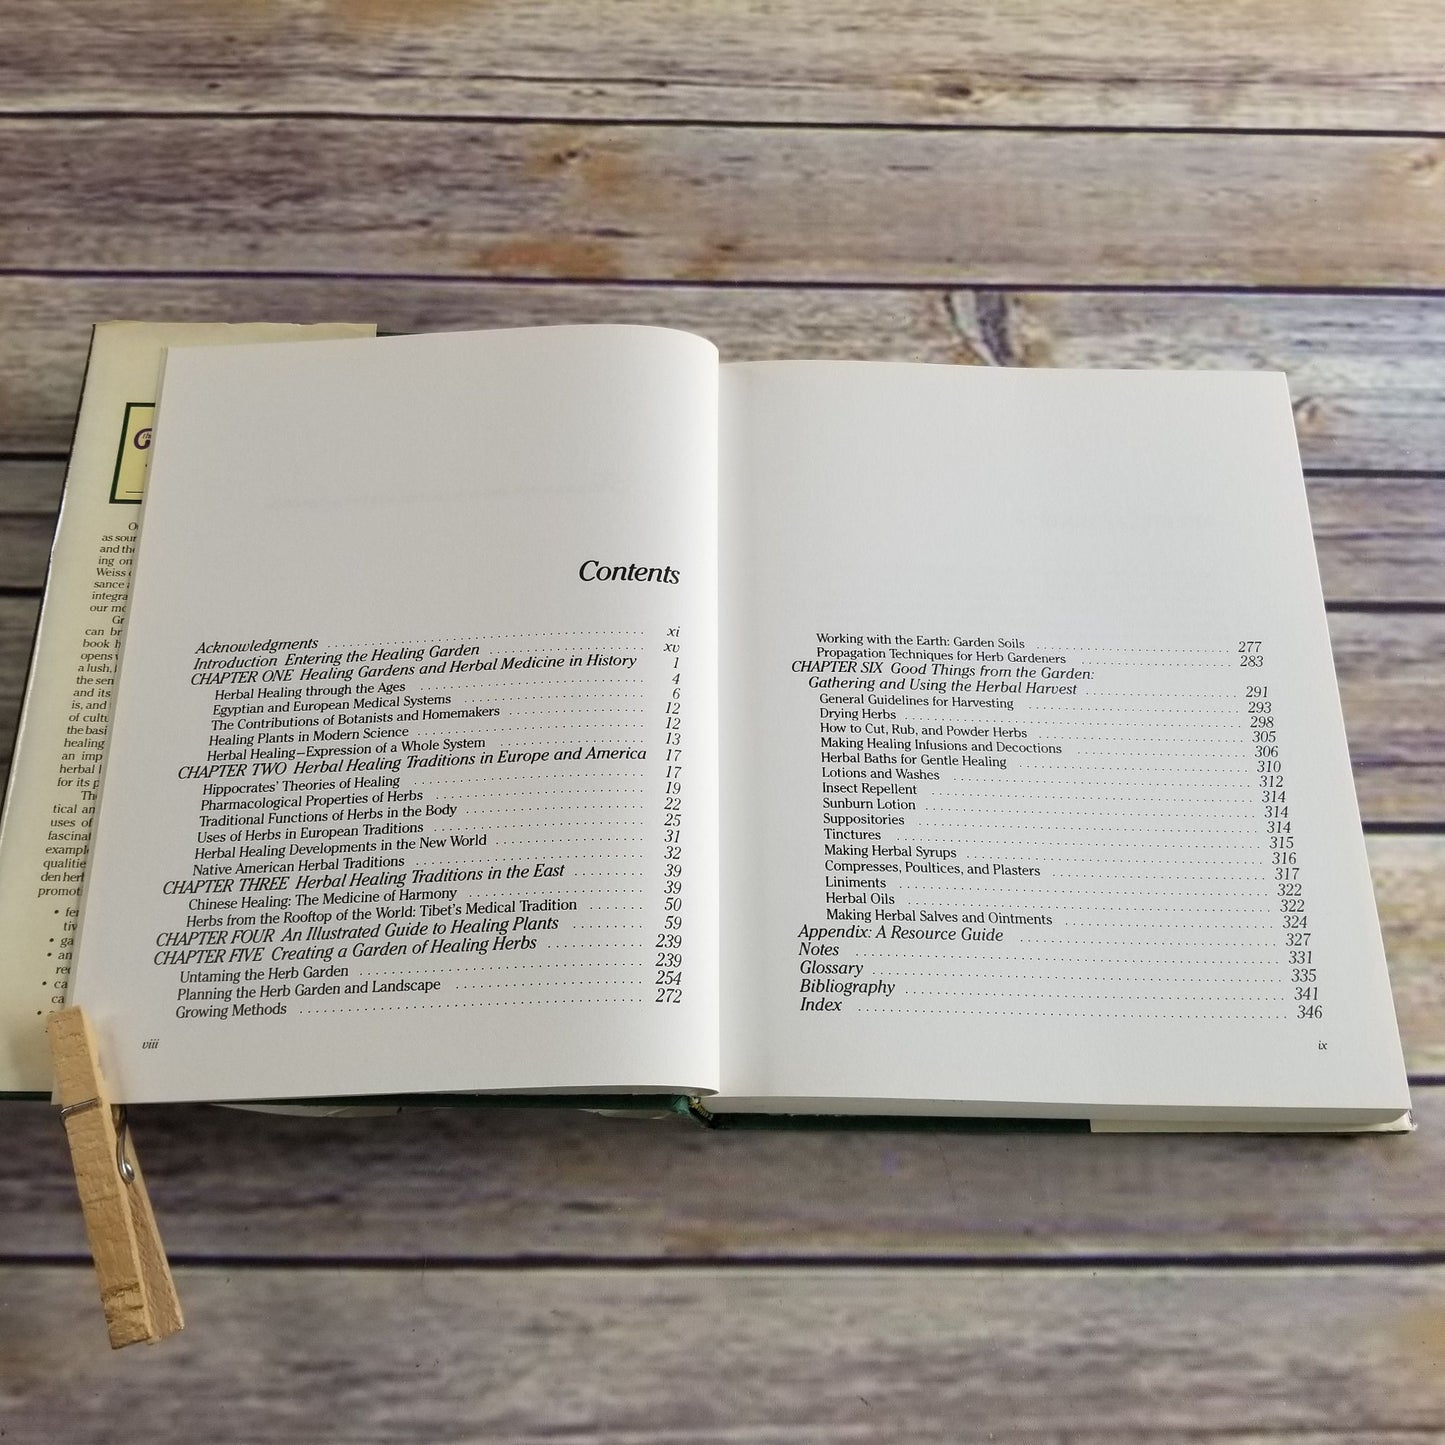 as sour
and the
ing on
Weiss
sance
integra
our mo
Gr
can br
book h
opens
a lush,
the sen
and its
is, and
of cultu
the basi
healing
an imp
herbal
for its p
Th
tical an
uses of
fascinat
example
qualitie
den her
promot
• fe
tiv
• ga
• an
re
• ca
ca
Contents
Acknowledgments xi
Introduction Entering the Healing Garden xv
CHAPTER ONE Healing Gardens and Herbal Medicine in History 1
Herbal Healing through the Ages 4
Egyptian and European Medical Systems 6
The Contributions of Botanists and Homemakers 12
Healing Plants in Modern Science 12
Herbal Healing—Expression of a Whole System 13
CHAPTER TWO Herbal Healing Traditions in Europe and America 17
Hippocrates' Theories of Healing 17
Pharmacological Properties of Herbs 19
Traditional Functions of Herbs in the Body 22
Uses of Herbs in European Traditions 25
Herbal Healing Developments in the New World 31
Native American Herbal Traditions 32
CHAPTER THREE Herbal Healing Traditions in the East 39
Chinese Healing: The Medicine of Harmony 39
Herbs from the Rooftop of the World: Tibet's Medical Tradition 50
CHAPTER FOUR An Illustrated Guide to Healing Plants 59
CHAPTER FIVE Creating a Garden of Healing Herbs 239
Untaming the Herb Garden 239
Planning the Herb Garden and Landscape 254
Growing Methods 272
viii
Working with the Earth: Garden Soils 277
Propagation Techniques for Herb Gardeners 283
CHAPTER SIX Good Things from the Garden:
Gathering and Using the Herbal Harvest 291
General Guidelines for Harvesting 293
Drying Herbs 298
How to Cut, Rub, and Powder Herbs 305
Making Healing Infusions and Decoctions 306
Herbal Baths for Gentle Healing 310
Lotions and Washes 312
Insect Repellent 314
Sunburn Lotion 314
Suppositories 314
Tinctures 315
Making Herbal Syrups 316
Compresses, Poultices, and Plasters 317
Liniments 322
Herbal Oils 322
Making Herbal Salves and Ointments 324
Appendix: A Resource Guide 327
Notes 331
Glossary 335
Bibliography 341
Index 346
ix